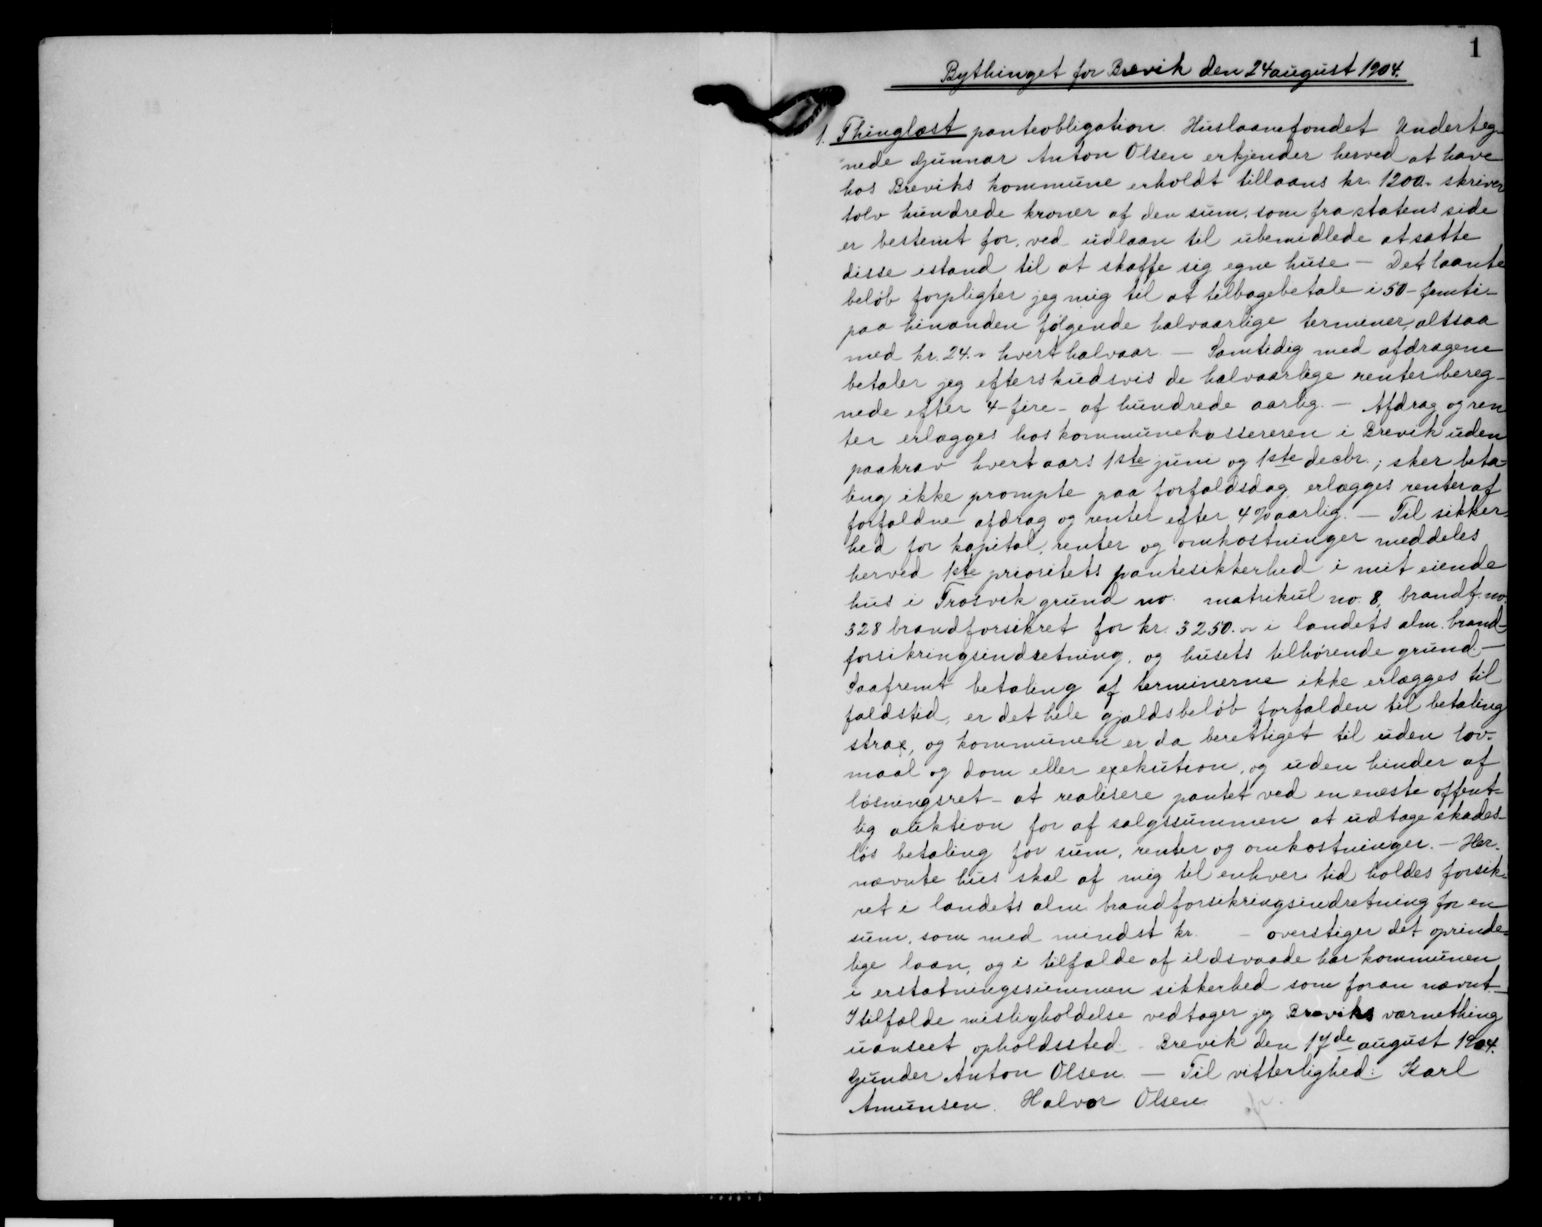 1
Bythinget for Brevik den 24 august 1904.
1. Thinglæst panteobligation. Huslaanefondet. Underteg-
nede Gunnar Anton Olsen erkjender herved at have
hos Breviks kommune erholdt tillaans kr. 1200.- skriver
tolv hundrede kroner af den sum, som fra statens side
er bestemt for, ved udlaan til ubemidlede at sætte
disse istand til at skaffe sig egne huse. — Det laante
beløb forpligter jeg mig til at tilbagebetale i 50 - femti -
paa hinanden følgende halvaarlige terminer, altsaa
med kr. 24.- hvert halvaar. — Samtidig med afdragene
betaler jeg efterskudsvis de halvaarlige renter bereg-
nede efter 4 - fire - af hundrede aarlig. — Afdrag og ren
ter erlægges hos kommunekassereren i Brevik uden
paakrav hvert aars 1ste juni og 1ste decbr.; sker beta-
ling ikke prompte paa forfaldsdag, erlægges renter af
forfaldne afdrag og renter efter 4 % aarlig. — Til sikker-
hed for kapital, renter og omkostninger meddeles
herved 1ste prioritets pantesikkerhed i mit eiende
hus i Trosvik grund no. matrikul no. 8, brandf. no.
328 brandforsikret for kr. 3250.- i landets alm. brand-
forsikringsindretning, og husets tilhørende grund. —
Saafremt betaling af terminerne ikke erlægges til
faldstid, er det hele gjældsbeløb forfalden til betaling
strax, og kommunen er da berettiget til uden lov-
maal og dom eller exekution, og uden hinder af
løsningsret - at realisere pantet ved en eneste offent-
lig auktion for af salgssummen at udtage skades-
løs betaling for sum, renter og omkostninger. — Her-
nævnte hus skal af mig til enhver tid holdes forsik-
ret i landets alm. brandforsikringsindretning for en
sum, som med mindst kr. - overstiger det oprinde-
lige laan, og i tilfælde af ildsvaade har kommunen
i erstatningssummen sikkerhed som foran nævnt. —
I tilfælde misligholdelse vedtager jeg Breviks værnething
uanseet opholdssted. Brevik den 17de august 1904.
Gunder Anton Olsen. — Til vitterlighed: Karl
Amunsen. Halvor Olsen.